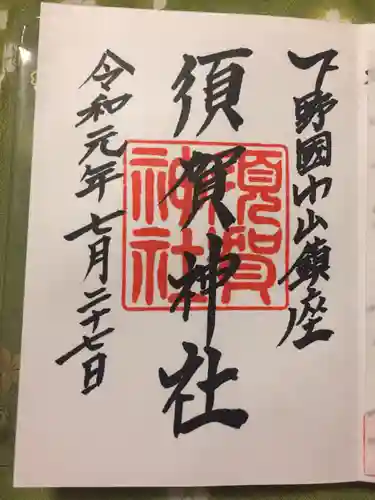 下野國小山鎮座
須賀神社
須賀
神社
令和元年七月二十七日